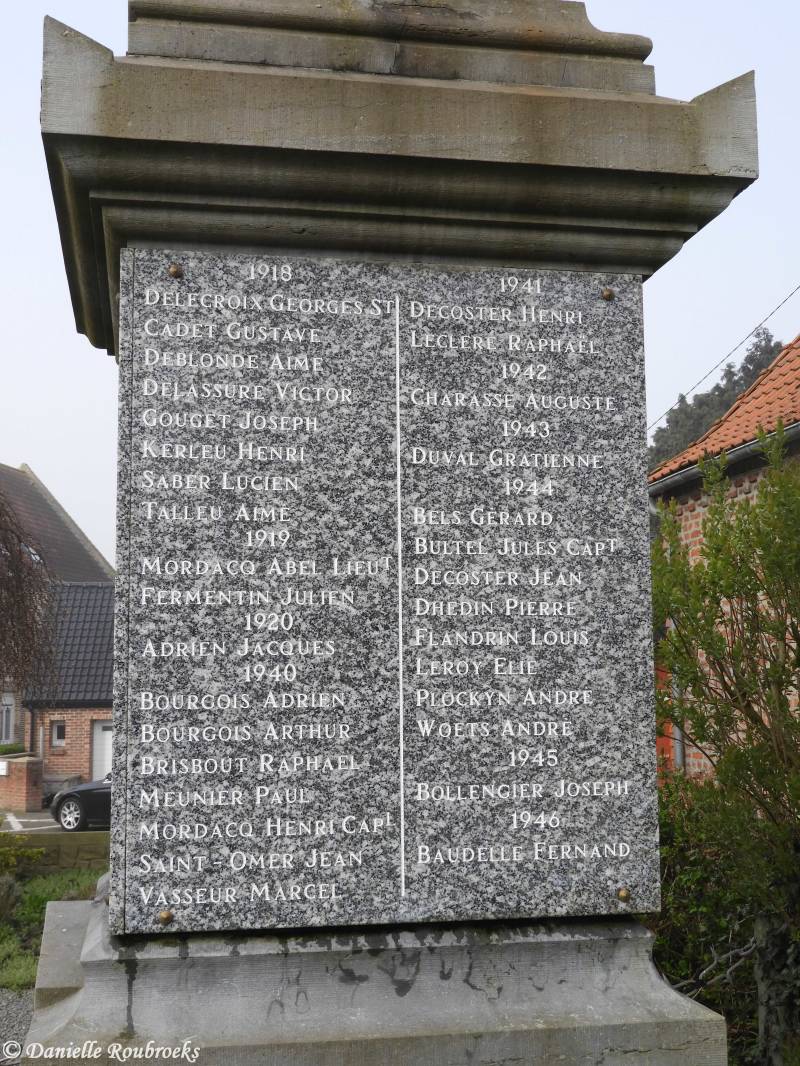 1918
DELECROIX GEORGES ST
CADET GUSTAVE
DEBLONDE AIMÉ
DELASSURE VICTOR
GOUGET JOSEPH
KERLEU HENRI
SABER LUCIEN
TALLEU AIMÉ
1919
MORDACQ ABEL LIEUT
FERMENTIN JULIEN
1920
ADRIEN JACQUES
1940
BOURGOIS ADRIEN
BOURGOIS ARTHUR
BRISBOUT RAPHAËL
MEUNIER PAUL
MORDACQ HENRI CAPL
SAINT-OMER JEAN
VASSEUR MARCEL
1941
DECOSTER HENRI
LECLERE RAPHAËL
1942
CHARASSE AUGUSTE
1943
DUVAL GRATIENNE
1944
BELS GÉRARD
BULTEL JULES CAPT
DECOSTER JEAN
DHEDIN PIERRE
FLANDRIN LOUIS
LEROY ELIE
PLOCKYN ANDRÉ
WOETS ANDRÉ
1945
BOLLENGIER JOSEPH
1946
BAUDELLE FERNAND
© Danielle Roubroeks